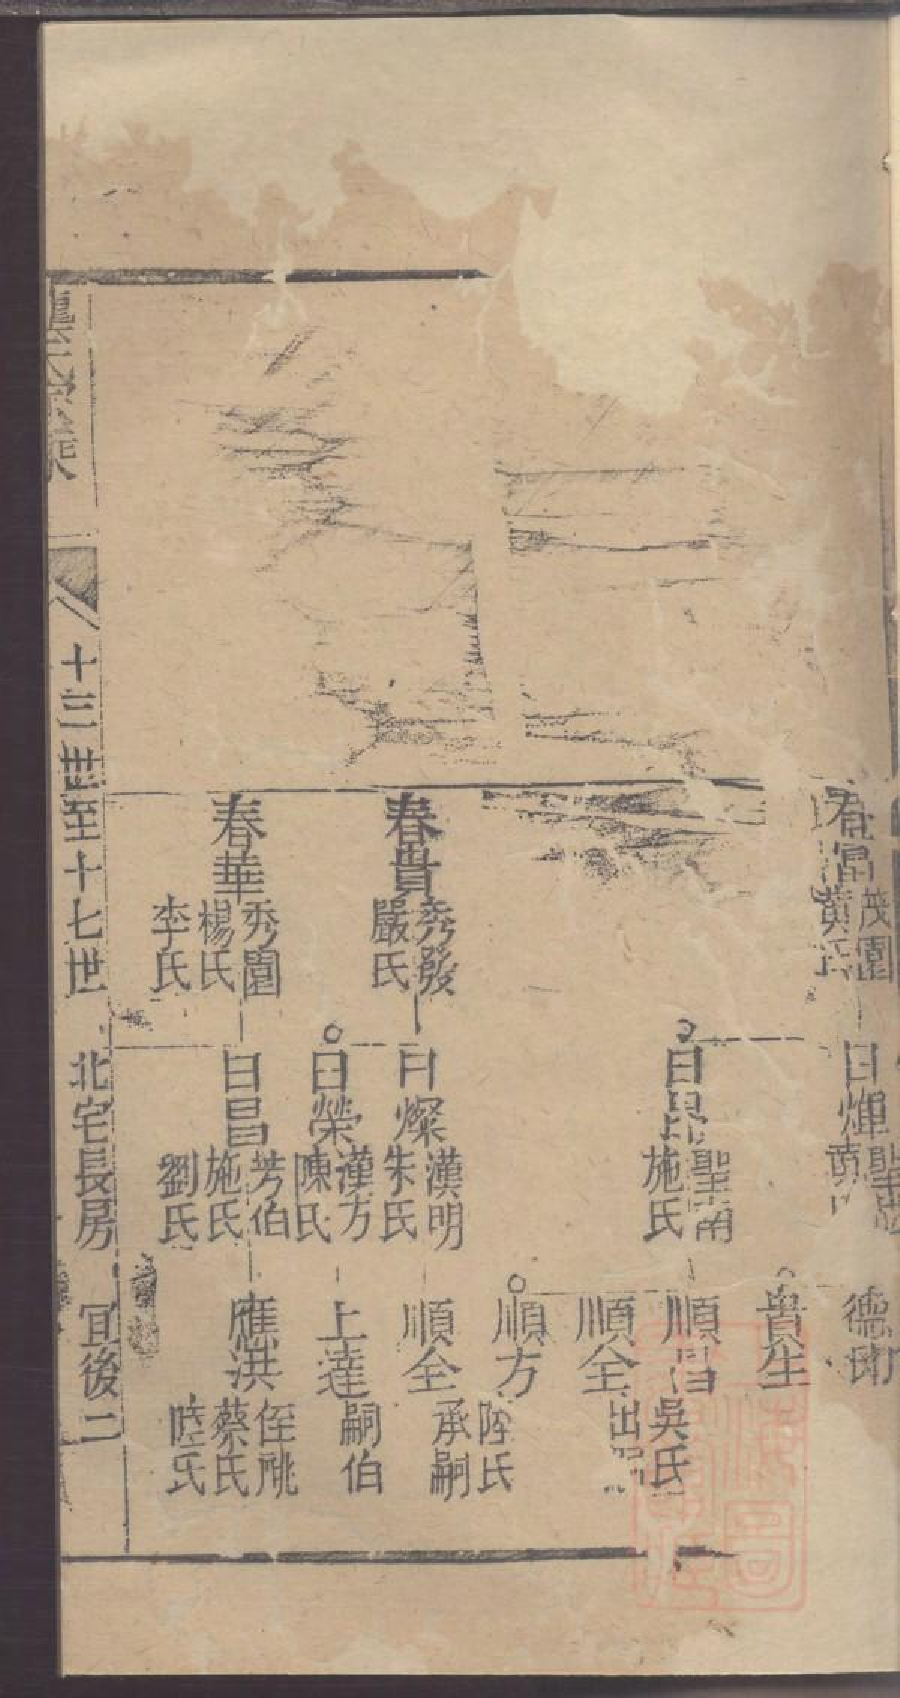 茂園
春富
黃氏
春貴
秀發
嚴氏
春華
秀園
楊氏
李氏
日煇
日昂
聖南
施氏
日燦
漢明
朱氏
日榮
漢方
陳氏
日昌
芳伯
施氏
劉氏
德
貴生
順昌
吳氏
順全
出
順方
陸氏
順全
承嗣
上達
嗣伯
應洪
侄祧
蔡氏
陸氏
十三世至十七世 北宅長房 宜後二